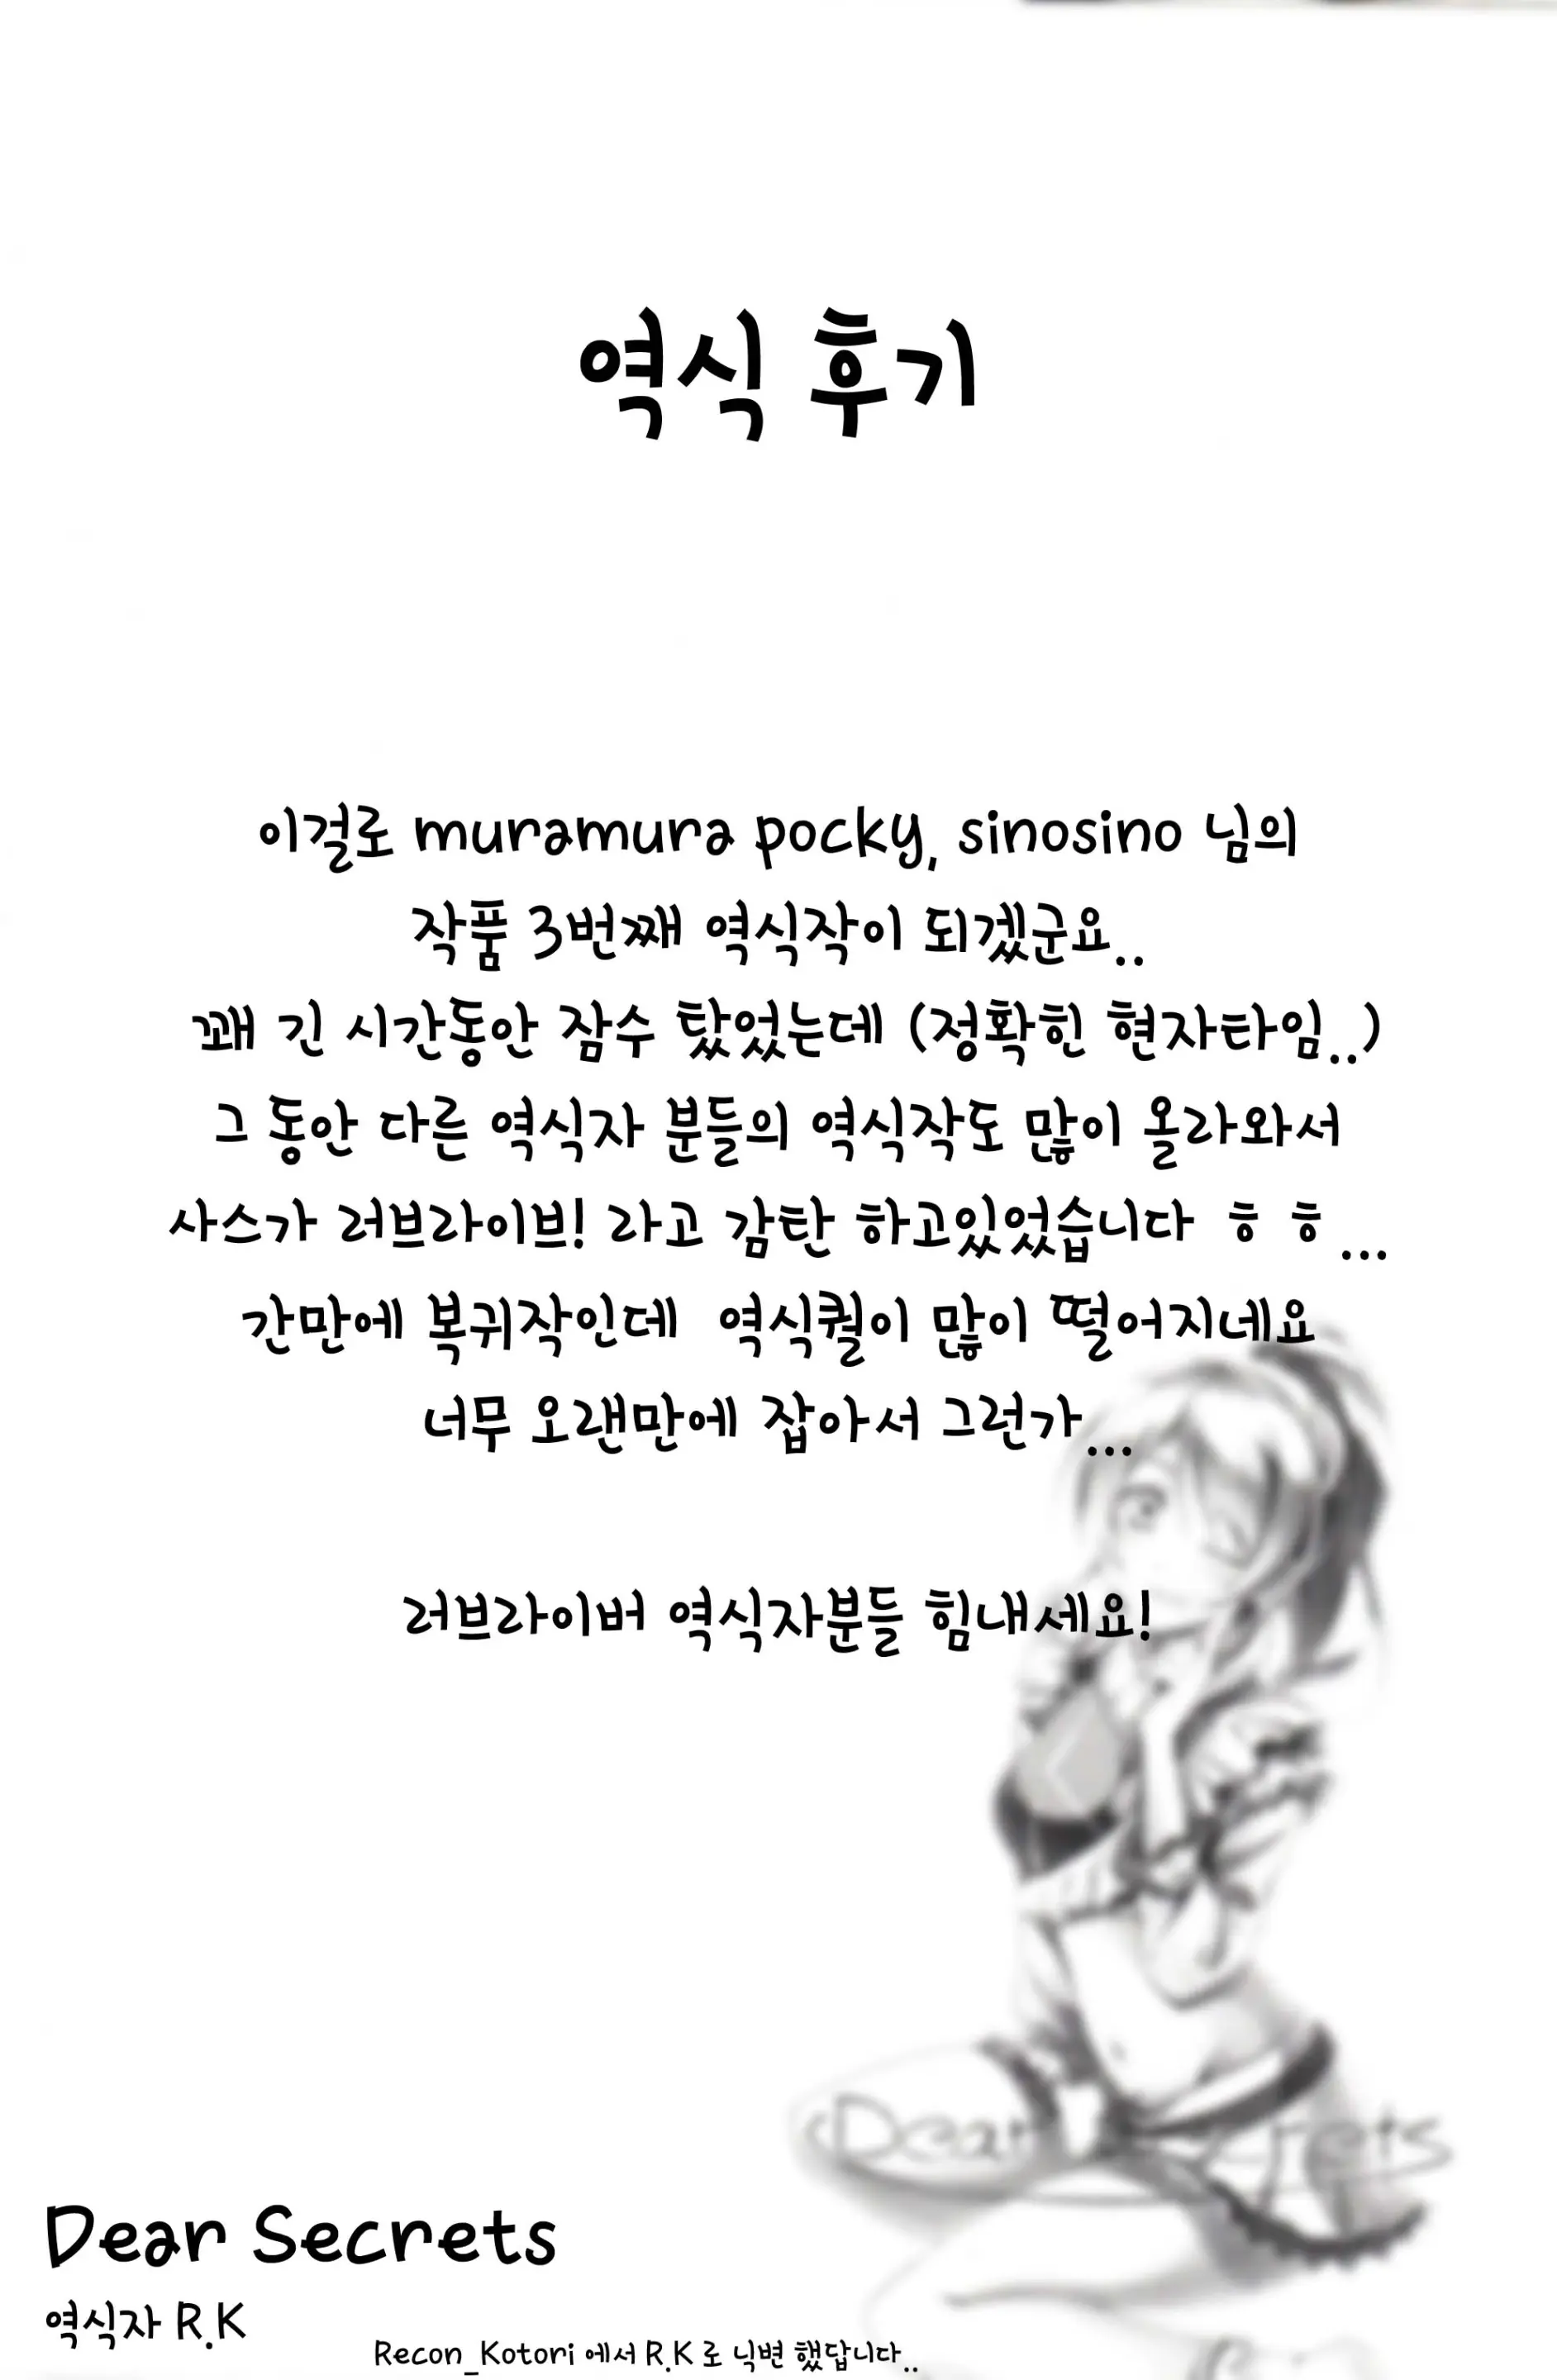 역식 후기
이걸로 muramura pocky, sinosino 님의
작품 3번째 역식작이 되겠군요..
꽤 긴 시간동안 잠수 탔었는데 (정확힌 현자타임..)
그 동안 다른 역식자 분들의 역식작도 많이 올라와서
사스가 러브라이브! 라고 감탄 하고있었습니다 ㅎㅎ...
간만에 복귀작인데 역식퀄이 많이 떨어지네요
너무 오랜만에 잡아서 그런가...
러브라이버 역식자분들 힘내세요!
Dear Secrets
Dear Secrets
역식자 R.K
Recon_Kotori 에서 R.K 로 닉변 했답니다..